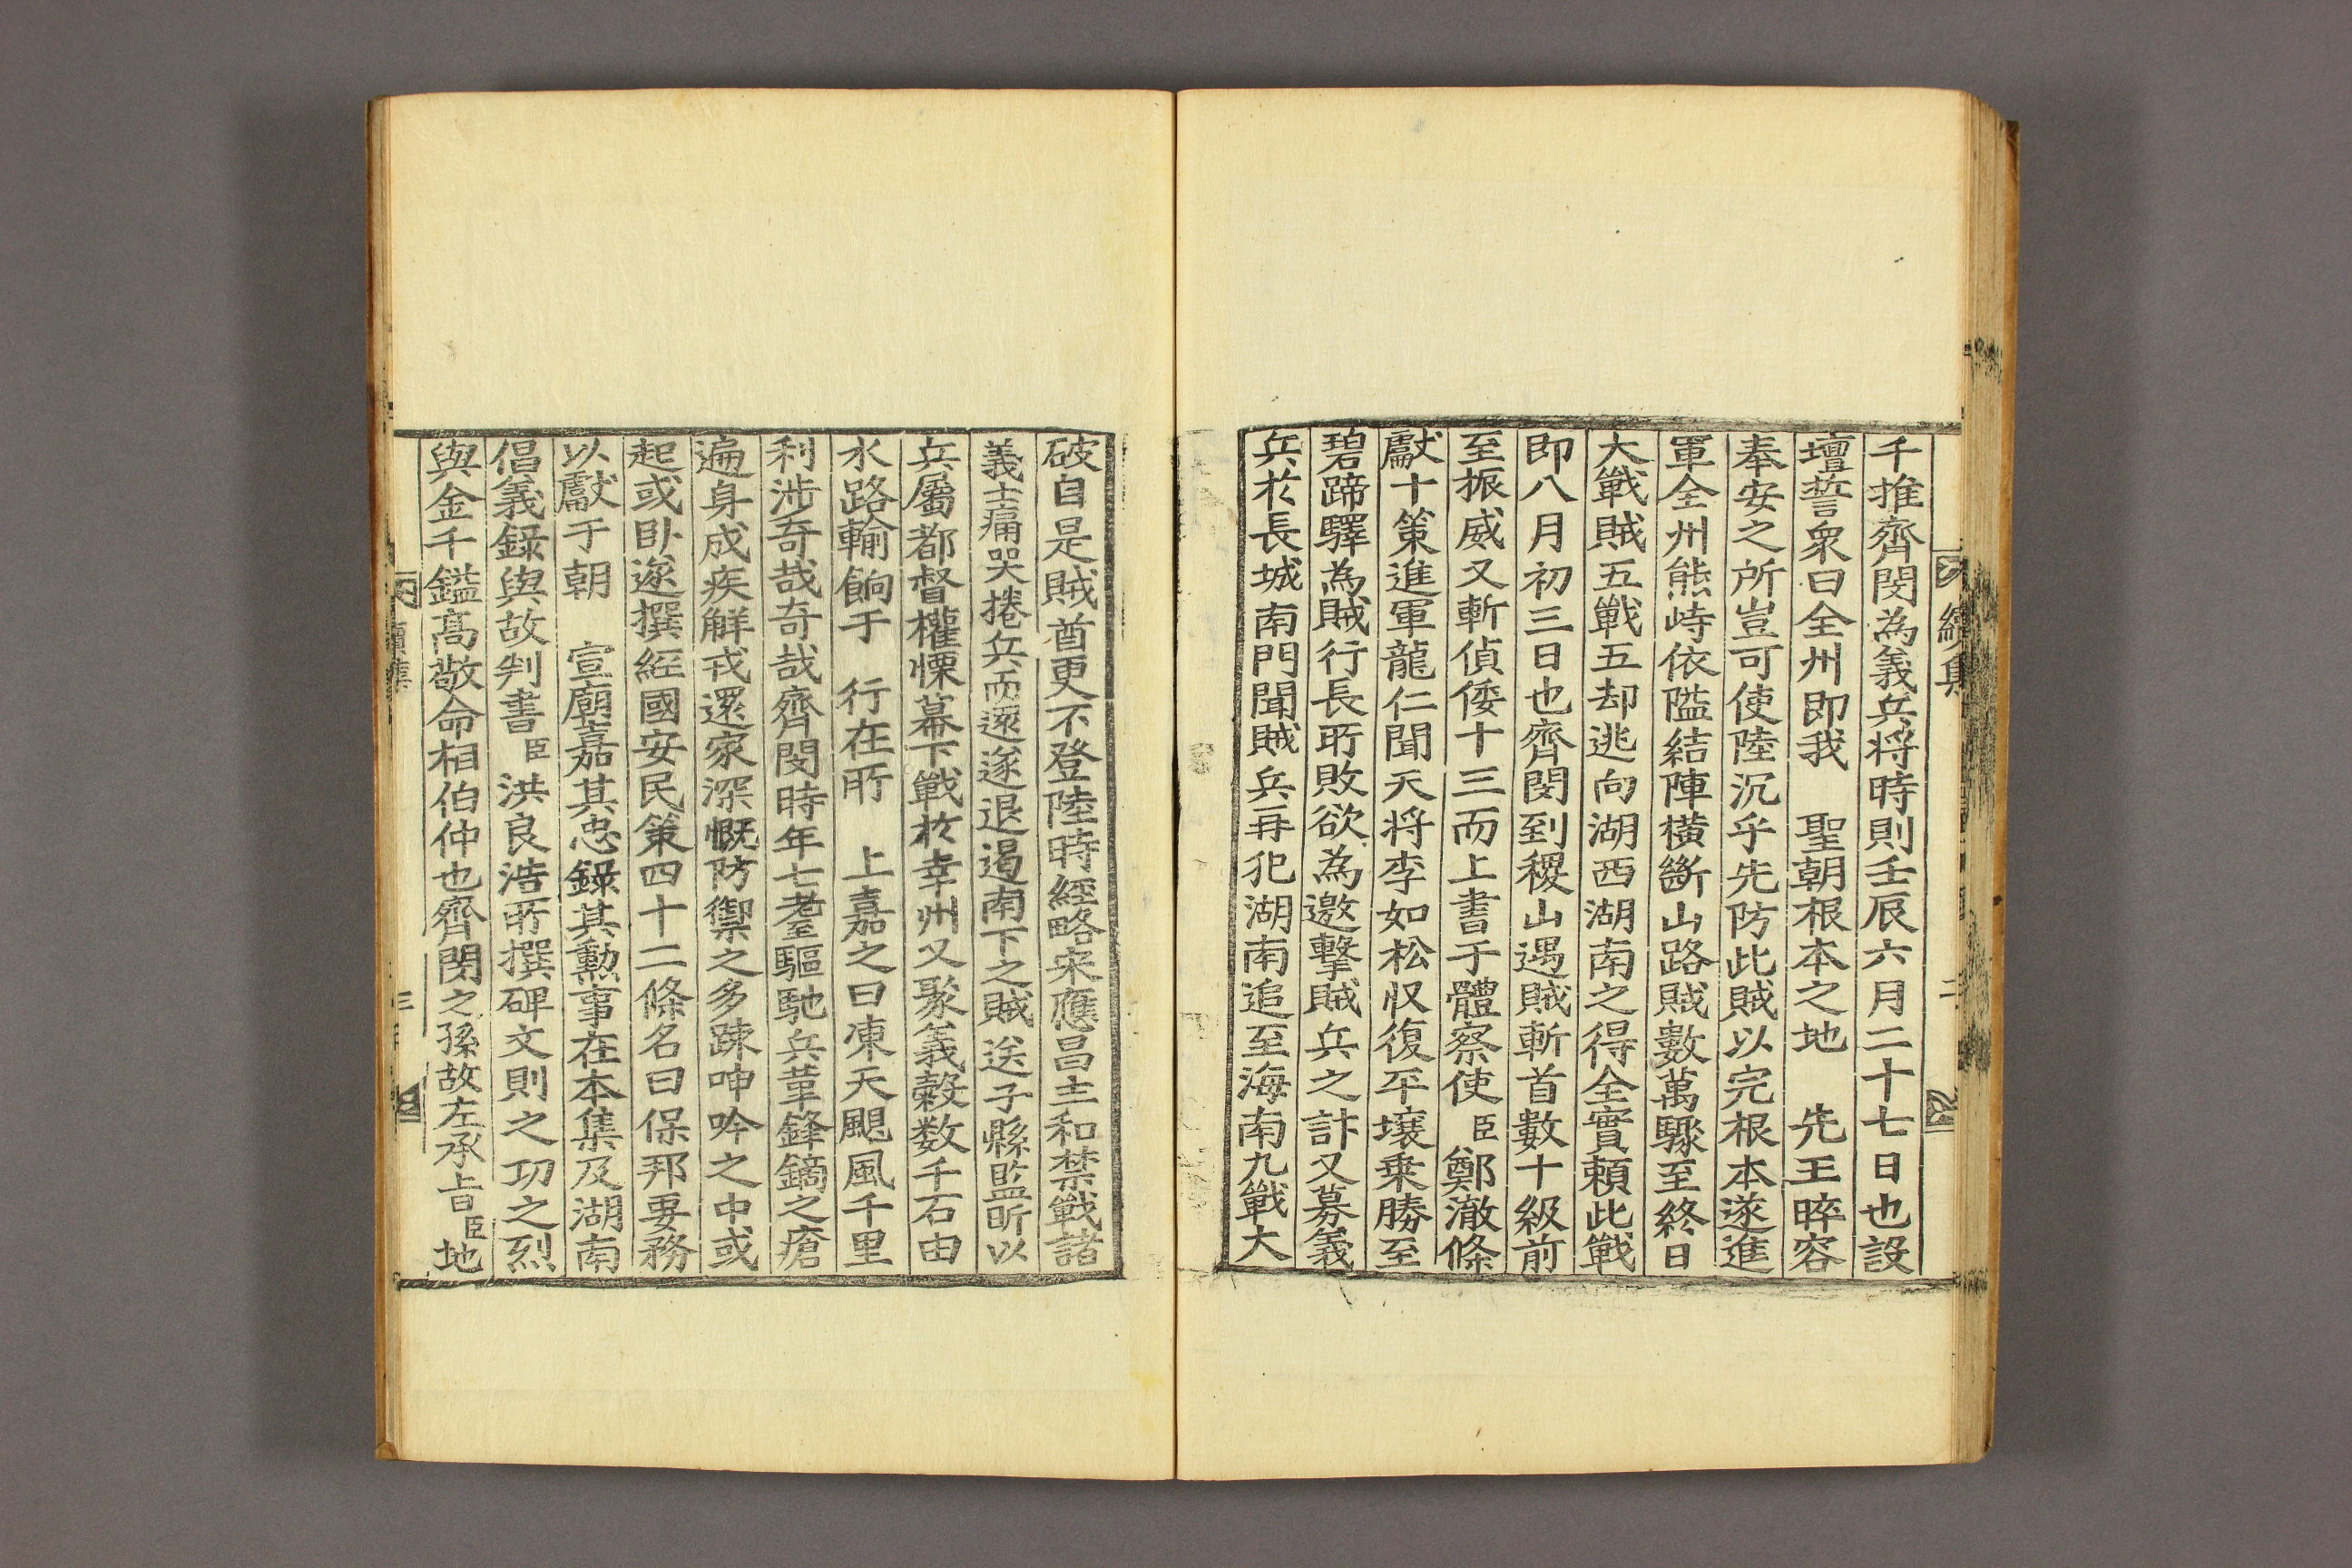 續集
二
千推齊閔為義兵将時則壬辰六月二十七日也設
壇誓衆曰全州即我 聖朝根本之地 先王睟容
奉安之所豈可使陸沉乎先防此賊以完根本遂進
軍全州熊峙依隘結陣橫斷山路賊數萬驟至終日
大戰賊五戰五却逃向湖西湖南之得全實賴此戰
即八月初三日也齊閔到稷山遇賊斬首數十級前
至振威又斬偵倭十三而上書于體察使臣鄭澈條
獻十策進軍龍仁聞天将李如松収復平壤乗勝至
碧蹄驛為賊行長所敗欲為邀擊賊兵之計又募義
兵於長城南門聞賊兵再犯湖南追至海南九戰大
破自是賊酋更不登陸時經略宋應昌主和禁戰諸
義士痛哭捲兵而還遂退遏南下之賊送子縣監昕以
兵屬都督權慄幕下戰於幸州又聚義穀数千石由
水路輸餉于 行在所 上嘉之曰凍天颶風千里
利涉奇哉奇哉齊閔時年七耋驅馳兵革鋒鏑之瘡
遍身成疾觧戎還家深慨防禦之多踈呻吟之中或
起或卧遂撰經國安民策四十二條名曰保邦要務
以獻于朝 宣廟嘉其忠錄其勳事在本集及湖南
倡義録與故判書臣洪良浩所撰碑文則之功之烈
與金千鎰高敬命相伯仲也齊閔之孫故左承旨臣地
續集
三